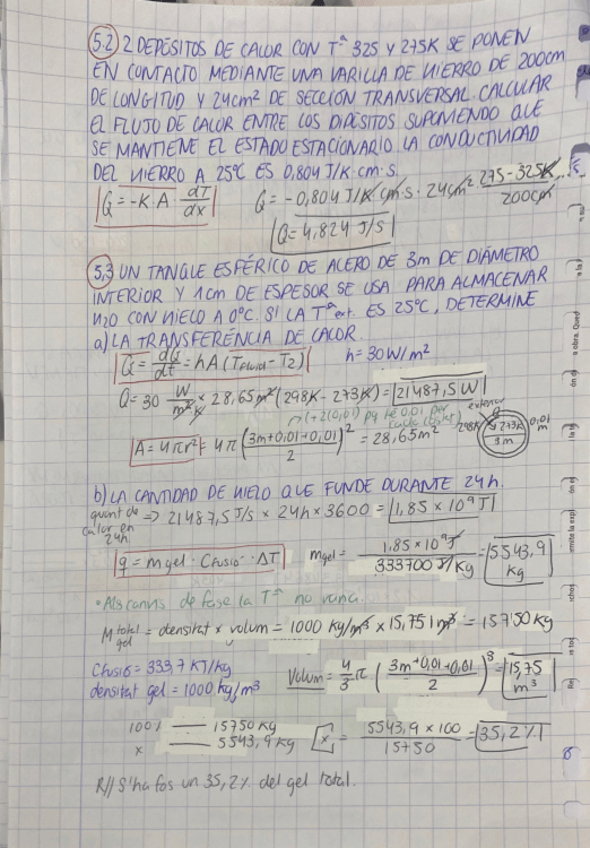 5.2) 2 DEPÓSITOS DE CALOR CON Tª 325 Y 275K SE PONEN
EN CONTACTO MEDIANTE UNA VARILLA DE HIERRO DE 200cm
DE LONGITUD Y 24cm² DE SECCIÓN TRANSVERSAL. CALCULAR
EL FLUJO DE CALOR ENTRE LOS DIPÓSITOS SUPONIENDO QUE
SE MANTIENE EL ESTADO ESTACIONARIO. LA CONDUCTIVIDAD
DEL HIERRO A 25°C ES 0,804 J/K·cm·s.
Q = -K·A · dT/dx    Q = -0,804 J/K·cm·s · 24cm² · 275-325K/200cm
Q = 4,824 J/S
5.3) UN TANQUE ESFÉRICO DE ACERO DE 3m DE DIÁMETRO
INTERIOR Y 1cm DE ESPESOR SE USA PARA ALMACENAR
H2O CON HIELO A 0°C. SI LA Tª ext. ES 25°C, DETERMINE
a) LA TRANSFERÉNCIA DE CALOR.
Q = dQ/dt = hA (Tfluid - T2)    h = 30 W/m²
Q = 30 W/m²K × 28,65m² (298K - 273K) = 21487,5 W
(+2(0,01) pq té 0,01 per
exterior
298K 273K 0,01 m
3m
A = 4πr² = 4π (3m+0,01+0,01/2)² = 28,65m²
b) LA CANTIDAD DE HIELO QUE FUNDE DURANTE 24h.
quant de calor en 24h. => 21487,5 J/s × 24h × 3600 = 1,85 × 10⁹ J
q = mgel · Cfusió · ΔT    mgel = 1,85 × 10⁹ J / 333700 J/Kg = 5543,9 kg
• Als canvis de fase la Tª no varia.
M total gel = densitat × volum = 1000 kg/m³ × 15,751 m³ = 15750 kg
Cfusió = 333,7 KJ/kg    Volum = 4/3 π (3m+0,01+0,01/2)³ = 15,75 m³
densitat gel = 1000 kg/m³
100% — 15750 kg
x — 5543,9 kg    x = 5543,9 × 100 / 15750 = 35,2%
R// S'ha fos un 35,2% del gel total.